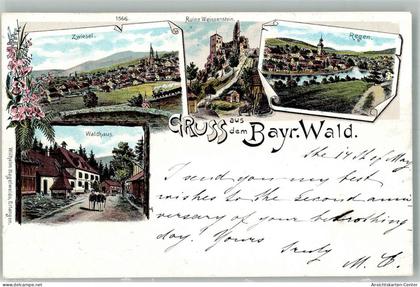 1566.
Zwiesel.
Ruine Weissenstein.
Regen.
Waldhaus.
GRUSS aus dem Bayr. Wald.
the 14th of May
I send you my best
wishes to the second anni
versary of your betrothing
day. Yours
truly
M. B.
Ansichtskarten-Center